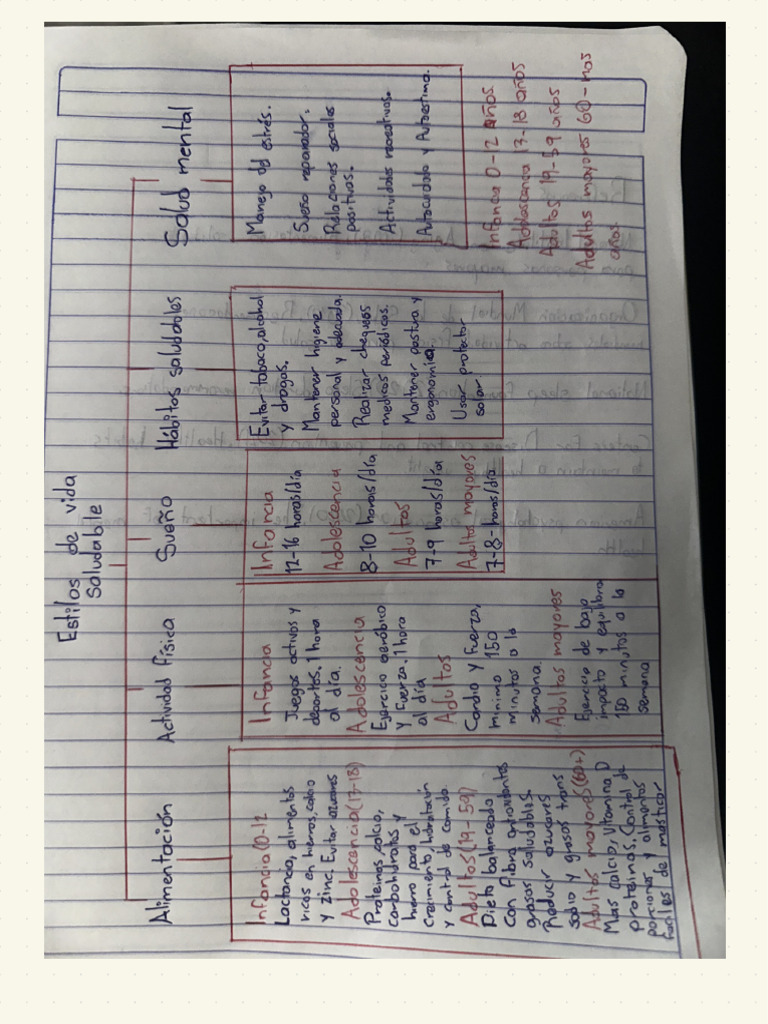 Estilos de vida
saludable
Alimentación
Infancia (0-12
Lactancia, alimentos
ricos en hierros, calcio
y zinc. Evitar azucares
Adolescencia (13-18)
Proteinas calcio,
carbohidratos y
hierro para el
crecimiento, hidratación
y control de comida.
Adultos (19-59)
Dieta balanceada
con fibra antioxidantes
grasas saludables.
Reducir azucares
sodio y grasas trans
Adultos mayores (60+)
Mas calcio, Vitamina D
proteinas. Control de
porciones y alimentos
faciles de masticar
Actividad física
Infancia
Juegos activos y
deportes. 1 hora
al día.
Adolescencia
Ejercicio aeróbico
y Fuerza. 1 hora
al día
Adultos
Cardio y Fuerza,
minimo 150
minutos a la
semana.
Adultos mayores
Ejercicio de bajo
impacto y equilibrio
150 minutos a la
semana
Sueño
Infancia
12-16 horas/día
Adolescencia
8-10 horas/día
Adultos
7-9 horas/día
Adulto mayores
7-8- horas/día.
Hábitos saludables
Evitar tabaco, alcohol
y drogas.
Mantener higiene
personal y adecuada.
Realizar chequeos
medicos periódicos.
Mantener postura y
ergonomia
Usar protector
solar.
Salud mental
Manejo del estrés.
Sueño reparador.
Relaciones sociales
positivas.
Actividades recreativas.
Autocuidado y Autoestima.
Infancia 0-12 años.
Adolescencia 13-18 años
Adultos 19-59 años
Adultos mayores 60-mas
años.